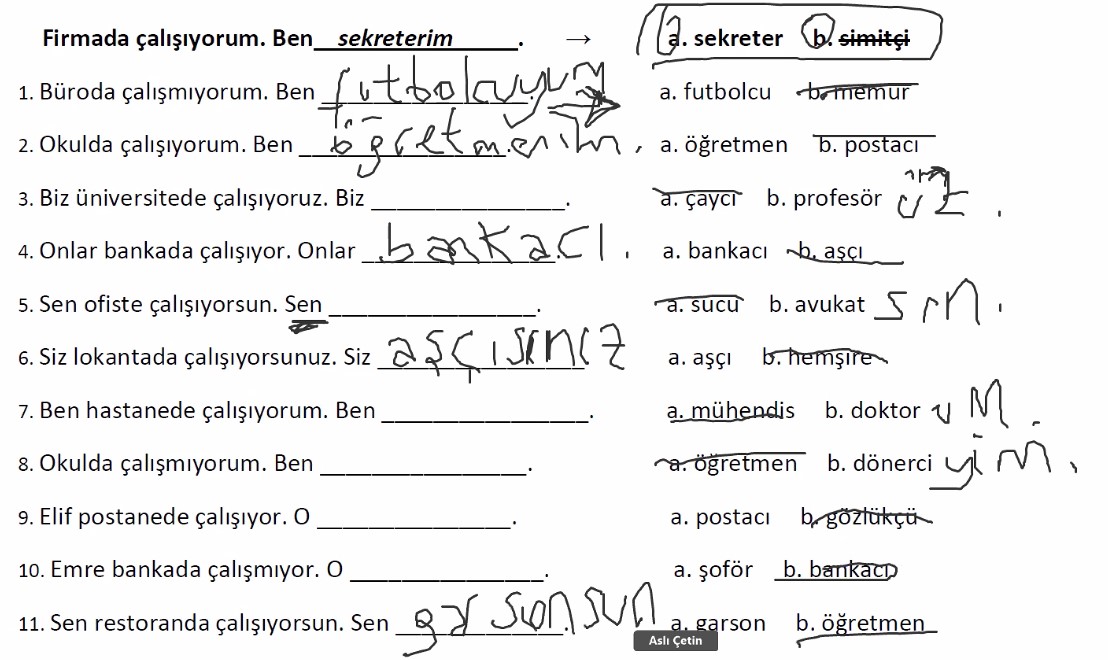 Firmada çalışıyorum. Ben__sekreterim______. → a. sekreter b. simitçi
1. Büroda çalışmıyorum. Ben futbolcuyum a. futbolcu b. memur
2. Okulda çalışıyorum. Ben öğretmenim. a. öğretmen b. postacı
3. Biz üniversitede çalışıyoruz. Biz ________________. a. çaycı b. profesör üz.
4. Onlar bankada çalışıyor. Onlar bankacı. a. bankacı b. aşçı
5. Sen ofiste çalışıyorsun. Sen _________________. a. sucu b. avukat sın.
6. Siz lokantada çalışıyorsunuz. Siz aşçısınız a. aşçı b. hemşire
7. Ben hastanede çalışıyorum. Ben _________________. a. mühendis b. doktor uM.
8. Okulda çalışmıyorum. Ben _________________. a. öğretmen b. dönerci yim.
9. Elif postanede çalışıyor. O ________________. a. postacı b. gözlükçü
10. Emre bankada çalışmıyor. O ________________. a. şoför b. bankacı
11. Sen restoranda çalışıyorsun. Sen garsonsun a. garson b. öğretmen
Aslı Çetin